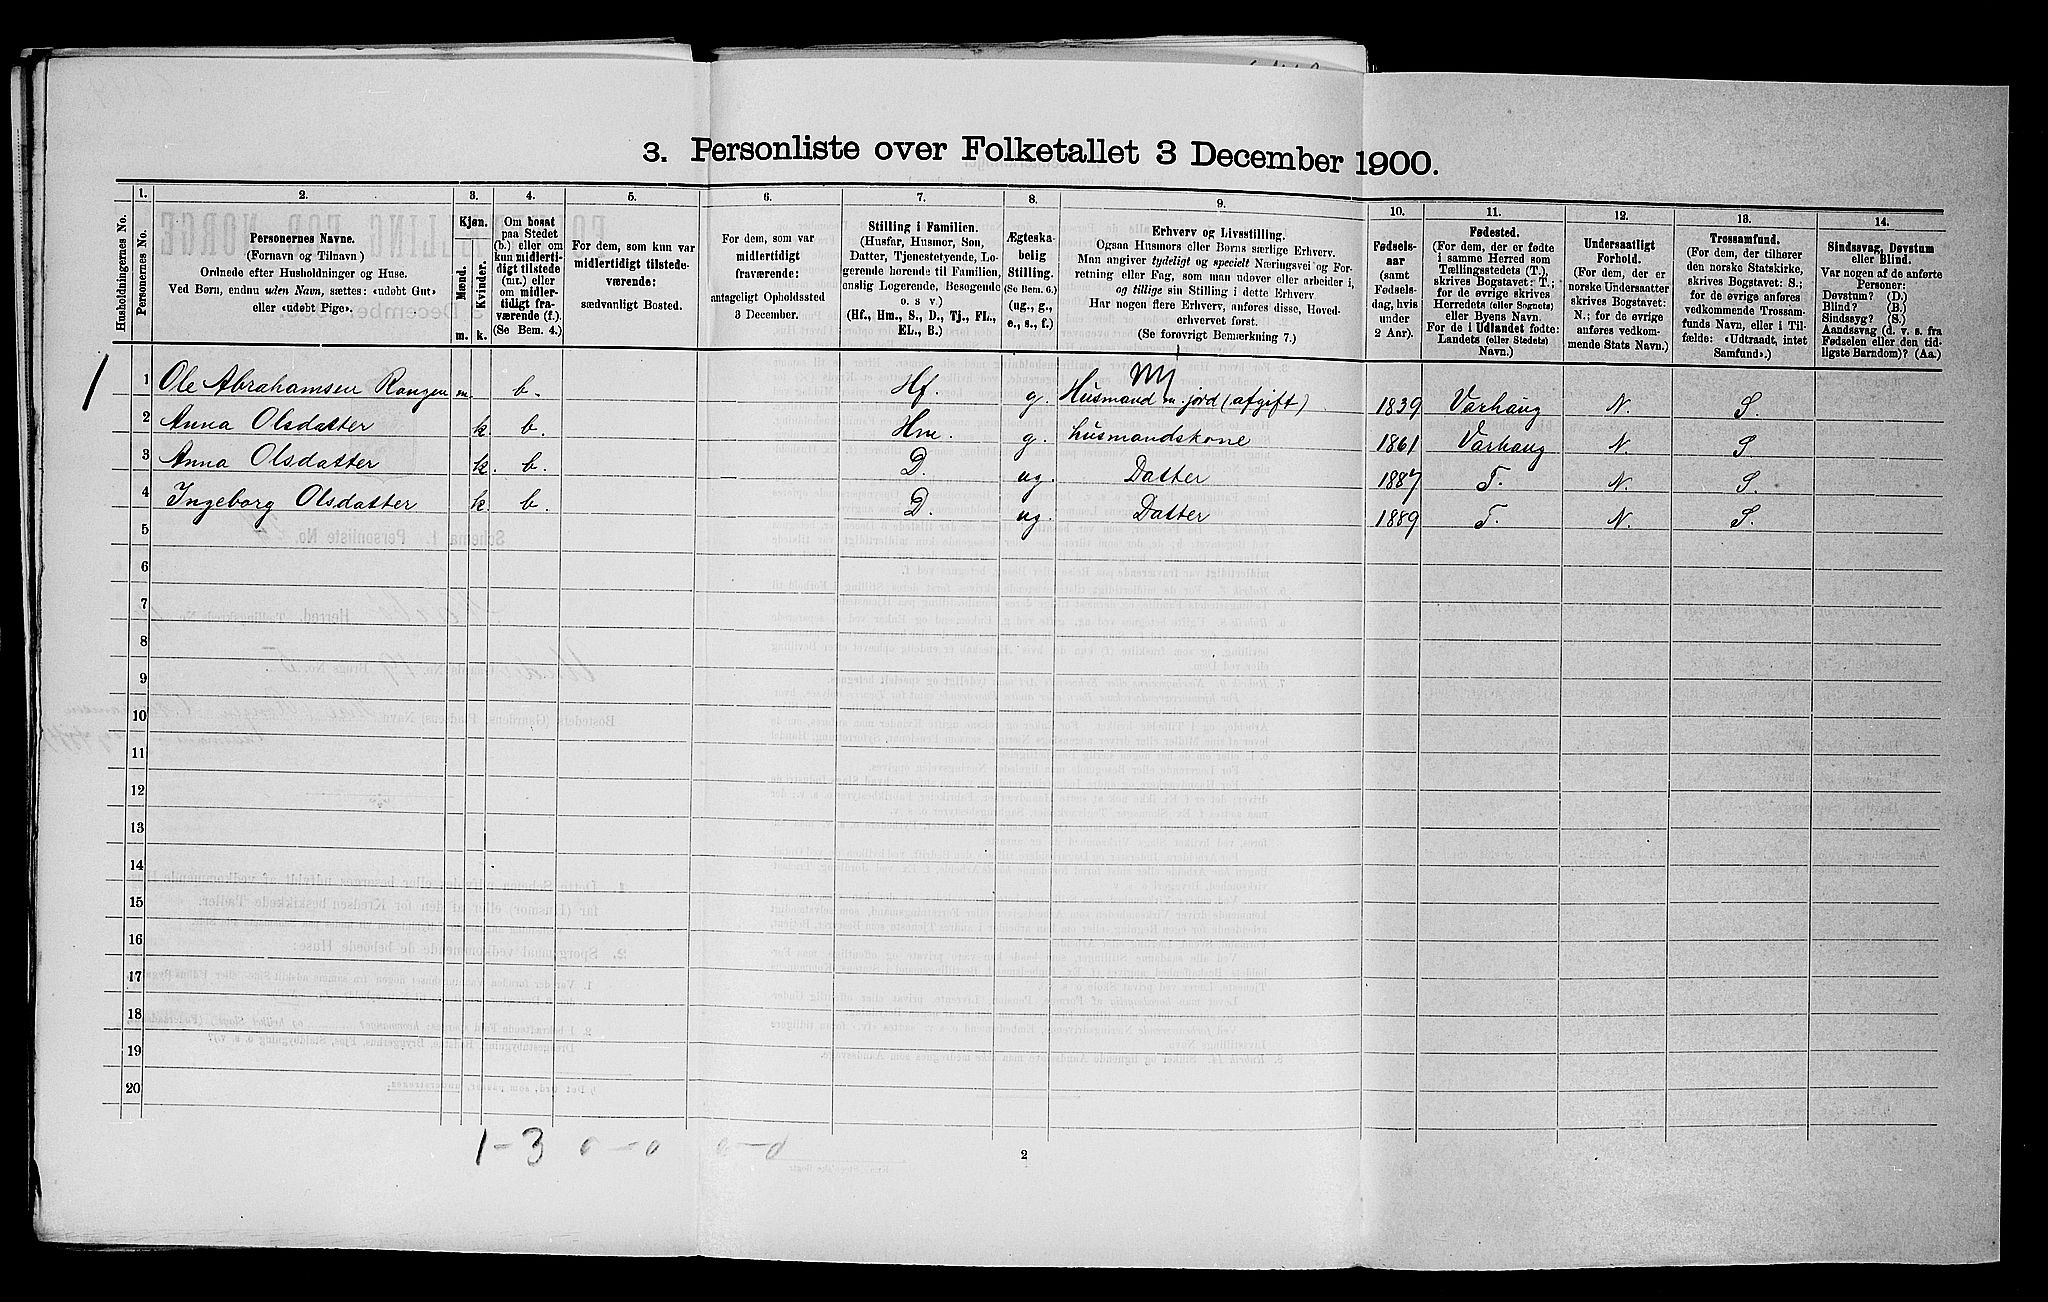 3. Personliste over Folketallet 3 December 1900.
1. 2. 3. 4. 5. 6. 7. 8. 9. 10. 11. 12. 13. 14.
Husholdningernes No.
Personernes No.
Personernes Navne.
(Fornavn og Tilnavn)
Ordnede efter Husholdninger og Huse.
Ved Børn, endnu uden Navn, sættes: «udøbt Gut»
eller «udøbt Pige».
Kjøn.
Mænd.
Kvinder.
m. k.
Om bosat
paa Stedet
(b.) eller om
kun midlerti-
digt tilstede
(mt.) eller
om midler-
tidigt fra-
værende (f.).
(Se Bem. 4.)
For dem, som kun var
midlertidigt tilstede-
værende:
sædvanligt Bosted.
For dem, som var
midlertidigt
fraværende:
antageligt Opholdssted
3 December.
Stilling i Familien.
(Husfar, Husmor, Søn,
Datter, Tjenestetyende, Lo-
gerende hørende til Familien,
enslig Logerende, Besøgende
o. s. v.)
(Hf., Hm., S., D., Tj., FL.,
EL., B.)
Ægteska-
belig
Stilling.
(Se Bem. 6.)
(ug., g.,
e., s., f.)
Erhverv og Livsstilling.
Ogsaa Husmors eller Børns særlige Erhverv.
Man angiver tydeligt og specielt Næringsvei og For-
retning eller Fag, som man udøver eller arbeider i,
og tillige sin Stilling i dette Erhverv.
Har nogen flere Erhverv, anføres disse, Hoved-
erhvervet først.
(Se forøvrigt Bemærkning 7.)
Fødsels-
aar
(samt
Fødsels-
dag, hvis
under
2 Aar).
Fødested.
(For dem, der er fødte
i samme Herred som
Tællingsstedets (T.),
skrives Bogstavet: T.;
for de øvrige skrives
Herredets (eller Sognets)
eller Byens Navn.
For de i Udlandet fødte:
Landets (eller Stedets)
Navn.)
Undersaatligt
Forhold.
(For dem, der er
norske Undersaatter
skrives Bogstavet:
N.; for de øvrige
anføres vedkom-
mende Stats Navn.)
Trossamfund.
(For dem, der tilhører
den norske Statskirke,
skrives Bogstavet: S.;
for de øvrige anføres
vedkommende Trossam-
funds Navn, eller i Til-
fælde: «Udtraadt, intet
Samfund».)
Sindssvag, Døvstum
eller Blind.
Var nogen af de anførte
Personer:
Døvstum? (D.)
Blind? (B.)
Sindssyg? (S.)
Aandssvag (d. v. s. fra
Fødselen eller den tid-
ligste Barndom)? (Aa.)
1 1 Ole Abrahamsen Rangen m. b. Hf. g. Husmand m. jord (afgift) 1839 Varhaug N. S.
2 Anna Olsdatter k. b. Hm. g. husmandskone 1861 Varhaug N. S.
3 Anna Olsdatter k. b. D. ug. Datter 1887 T. N. S.
4 Ingeborg Olsdatter k. b. D. ug. Datter 1889 T. N. S.
5
6
7
8
9
10
11
12
13
14
15
16
17
18
19
20
1-3 0-0 0-0
2